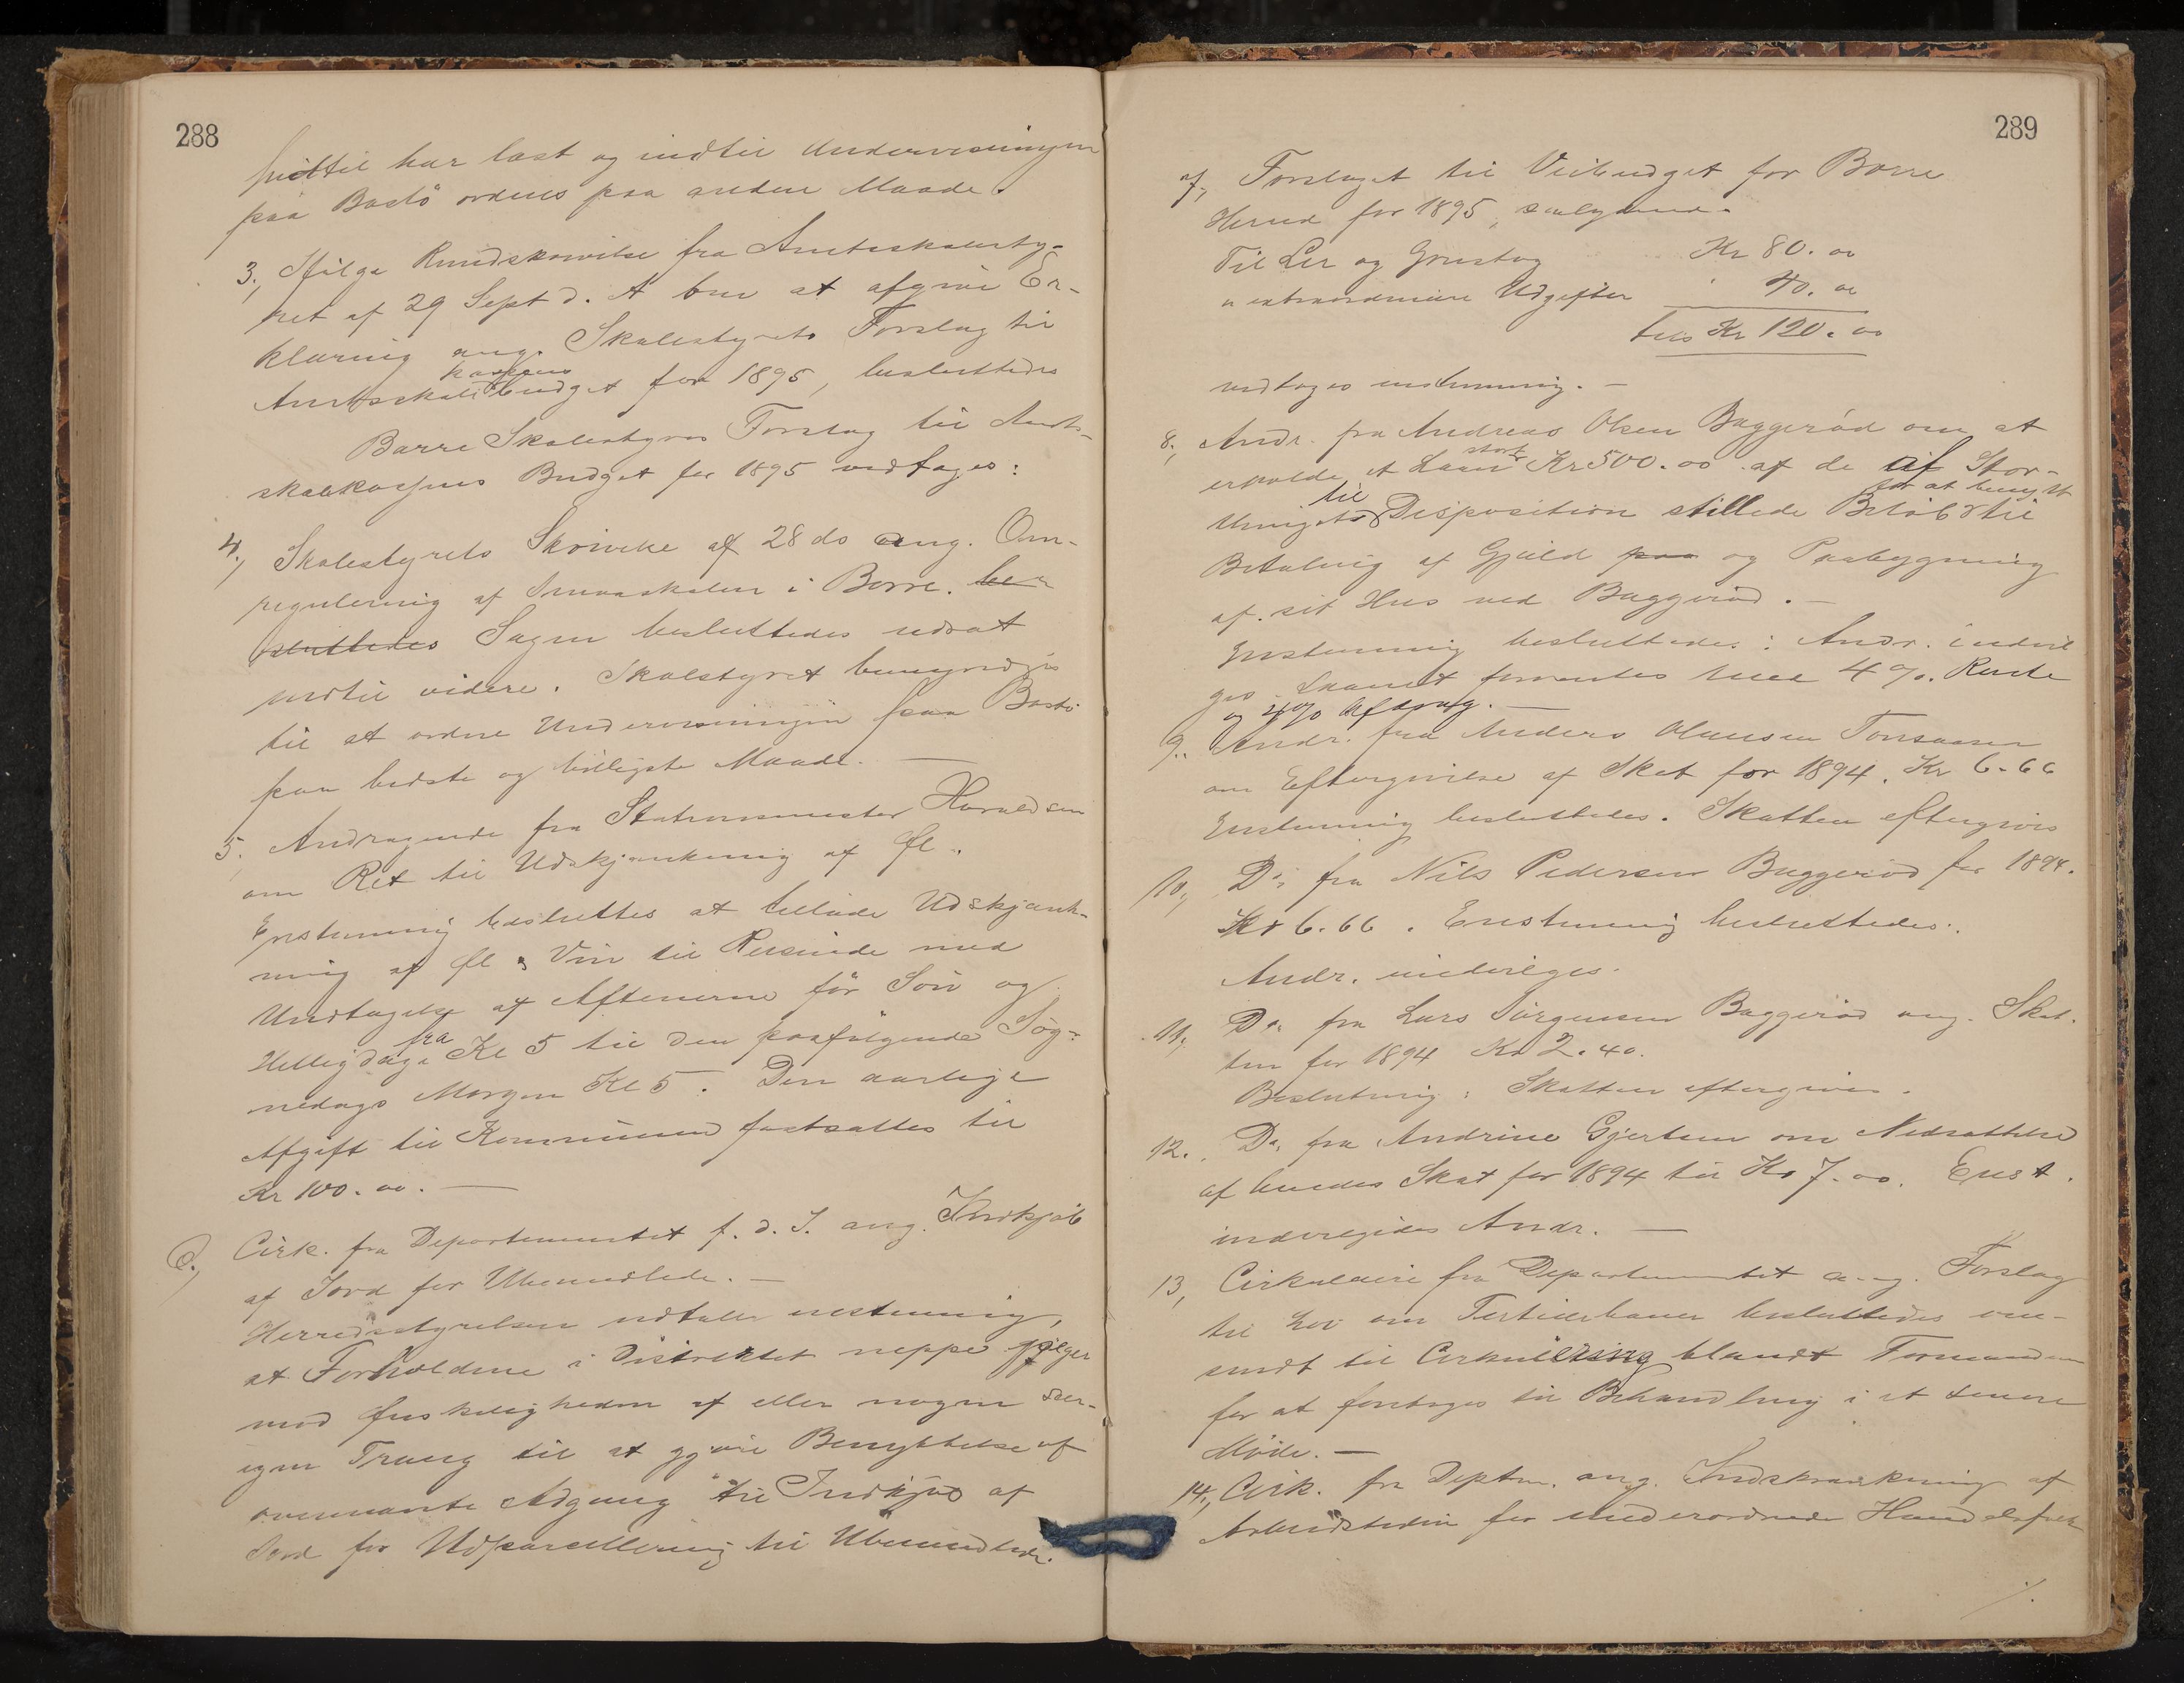 288
hidtil har læst og indtil Undervisningen
paa Bastö ordnes paa anden Maade.
3., Ifølge Rundskrivelse fra Amtsskolesty-
ret af 29 Sept d. A om at afgive Er-
klæring ang. Skolestyrets Forslag til
kassens
Amtsskolebudget for 1895, besluttedes
Borre Skolestyres Forslag til Amts-
skolekassens Budget for 1895 vedtages:
4., Skolestyrets Skrivelse af 28 ds ang. Om-
regulering af Smaaskolen i Borre. be-
sluttedes Sagen besluttedes udsat
indtil videre. Skolestyret bemyndiges
til at ordne Undervisningen paa Bastö
paa bedste og billigste Maade. —
5., Andragende fra Stationsmester Haraldsen
om Ret til Udskjænkning af Øl.
Enstemmig besluttes at tillade Udskjænk-
ning af Øl & Vin til Reisende med
Undtagelse af Aftenerne før Søn og
fra
Helligdage Kl 5 til den paafølgende Søg-
nedags Morgen Kl 5. Den aarlige
Afgift til Kommunen fastsattes til
Kr 100.00. —
6., Cirk. fra Departementet f. d. I. ang. Indkjøb
af Jord for Ubemidlede. —
Herredsstyrelsen udtaler enstemmig,
at Forholdene i Distriktet neppe
mod Ønskeligheden af eller nogen sær-
egen Trang til at gjøre Benyttelse af
ovennævnte Adgang til Indkjøb af
Jord for Udparcellering til Ubemidlede.
289
7., Forslaget til Veibudget for Borre
Herred for 1895, saalydende
Til Ler og Grustag Kr 80.00
" extraordinære Udgifter " 40.00
tils Kr 120.00
vedtages enstemmig. —
8., Andr. fra Andreas Olsen Baggerød om at
stort
erholde et Laan Kr 500.00 af de af Stor-
til for at benytt
thingets Disposition stillede Beløb til
Betaling af Gjæld paa og Paabygning
af sit Hus ved Baggerød. —
Enstemmig besluttedes: Andr. indvil
ges. Laanet forrentes med 4 %. Rente
og 4% Afdrag. —
9., Andr. fra Anders Olausen
om Eftergivelse af Skat for 1894. Kr 6.66
Enstemmig besluttedes. Skatten eftergives
10., Do, fra Nils Pedersen Baggerød for 1894.
Kr 6.66. Enstemmig besluttedes:
Andr. indvilges.
11., Do fra Lars Jørgensen Baggerød ang. Skat-
ten for 1894 Kr 2.40.
Beslutning: Skatten eftergives.
12. Do, fra Andrine Gjertsen om Nedsættelse
af hendes Skat for 1894 til Kr 7.00. Enst.
indvilgedes Andr. —
13, Cirkulære fra Departementet ang. Forslag
til Lov om Tertiærbaner besluttedes om-
sendt til Cirkulering blandt Formænden
for at foretages til Behandling i et senere
Møde. —
14., Cirk. fra Deptm. ang. Indskrænkning af
Arbeidstiden for underordnede Handelsfolk